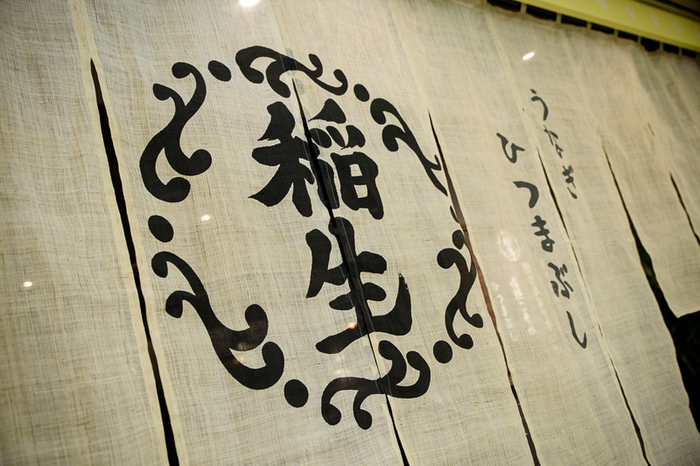 うなぎ
ひつまぶし
稲生